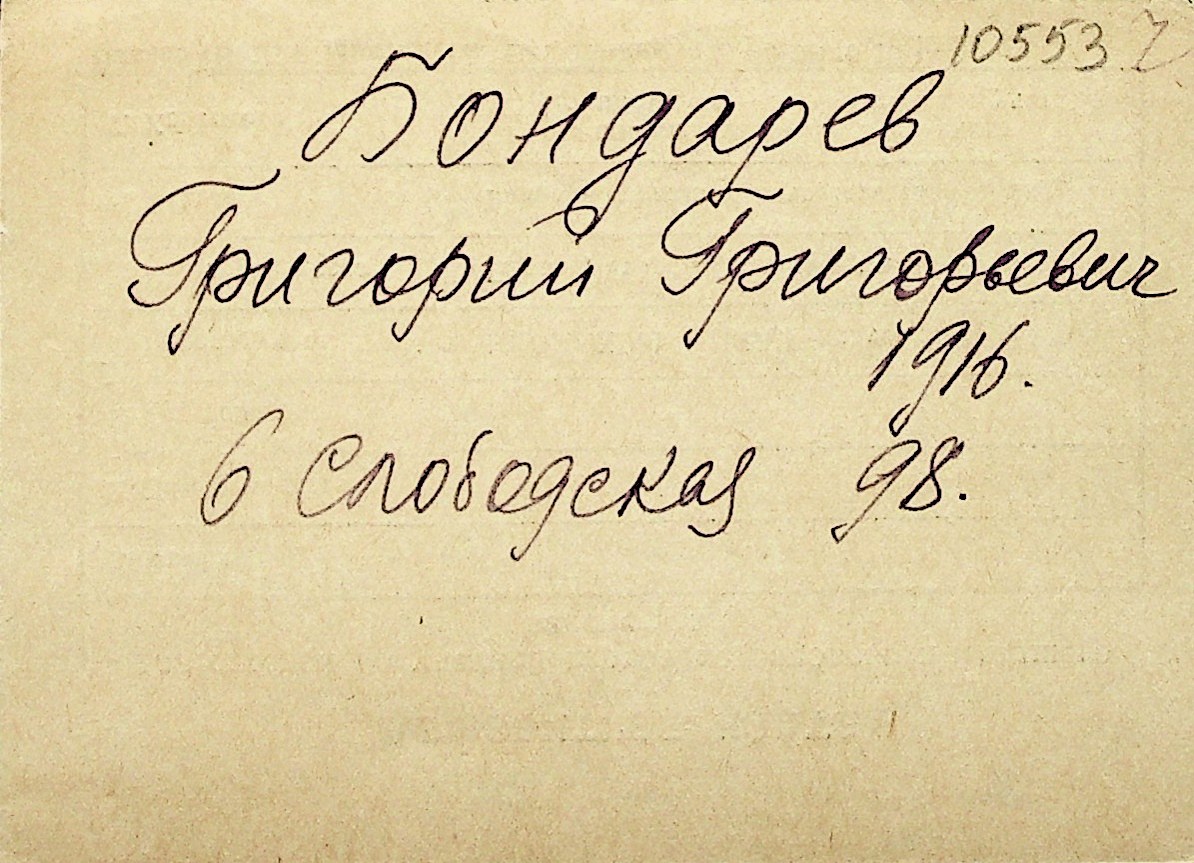 10553
Бондарев
Григорий Григорьевич
1916.
6 Слободская 98.